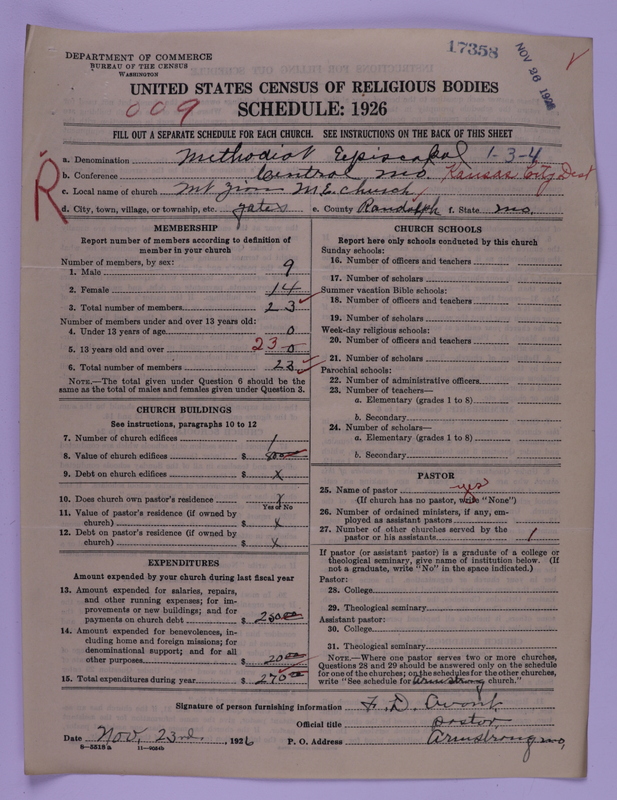 17358
NOV 26 1926
DEPARTMENT OF COMMERCE
BUREAU OF THE CENSUS
WASHINGTON
UNITED STATES CENSUS OF RELIGIOUS BODIES
009
SCHEDULE: 1926
FILL OUT A SEPARATE SCHEDULE FOR EACH CHURCH. SEE INSTRUCTIONS ON THE BACK OF THIS SHEET
R
a. Denomination Methodist Episcopal 1-3-4
b. Conference Central Mo. Kansas City Dist
c. Local name of church Mt Zion M E church
d. City, town, village, or township, etc. Yates e. County Randolph f. State Mo.
MEMBERSHIP
Report number of members according to definition of
member in your church
Number of members, by sex:
1. Male 9
2. Female 14
3. Total number of members 23
Number of members under and over 13 years old:
4. Under 13 years of age 0
5. 13 years old and over 23 0
6. Total number of members 23
NOTE.—The total given under Question 6 should be the
same as the total of males and females given under Question 3.
CHURCH BUILDINGS
See instructions, paragraphs 10 to 12
7. Number of church edifices 1
8. Value of church edifices $
9. Debt on church edifices $ x
10. Does church own pastor's residence x
Yes or No
11. Value of pastor's residence (if owned by
church) $ x
12. Debt on pastor's residence (if owned by
church) $ x
EXPENDITURES
Amount expended by your church during last fiscal year
13. Amount expended for salaries, repairs,
and other running expenses; for im-
provements or new buildings; and for
payments on church debt $ 250.00
14. Amount expended for benevolences, in-
cluding home and foreign missions; for
denominational support; and for all
other purposes $ 20.00
15. Total expenditures during year $ 270.00
CHURCH SCHOOLS
Report here only schools conducted by this church
Sunday schools:
16. Number of officers and teachers
17. Number of scholars
Summer vacation Bible schools:
18. Number of officers and teachers
19. Number of scholars
Week-day religious schools:
20. Number of officers and teachers
21. Number of scholars
Parochial schools:
22. Number of administrative officers
23. Number of teachers—
a. Elementary (grades 1 to 8)
b. Secondary
24. Number of scholars—
a. Elementary (grades 1 to 8)
b. Secondary
PASTOR
25. Name of pastor yes
(If church has no pastor, write "None")
26. Number of ordained ministers, if any, em-
ployed as assistant pastors
27. Number of other churches served by the
pastor or his assistants 1
If pastor (or assistant pastor) is a graduate of a college or
theological seminary, give name of institution below. (If
not a graduate, write "No" in the space indicated.)
Pastor:
28. College
29. Theological seminary
Assistant pastor:
30. College
31. Theological seminary
NOTE.—Where one pastor serves two or more churches,
Questions 28 and 29 should be answered only on the schedule
for one of the churches; on the schedules for the other churches,
write "See schedule for Armstrong church."
Signature of person furnishing information F. D. Avant
Official title pastor
Date Nov, 23rd, 1926 P. O. Address Armstrong Mo,